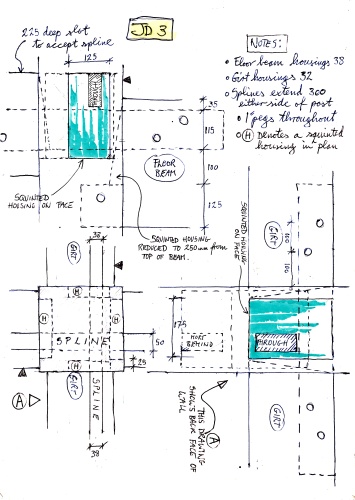 225 deep slot
to accept spline
JD 3
NOTES:
• Floor beam housings 38
• Girt housings 32
• Splines extend 300
either side of post
• 1" pegs throughout
• Ⓗ Denotes a squinted
housing in plan
125
THROUGH
35
115
100
125
FLOOR
BEAM
SQUINTED
HOUSING ON FACE
SQUINTED HOUSING
REDUCED TO 250mm from
TOP OF BEAM.
SQUINTED HOUSING
ON FACE
GIRT
100
100
38
GIRT
H
H
H
H
SPLINE
50
25
GIRT
SPLINE
38
A
175
MORT
BEHIND
THROUGH
GIRT
THIS DRAWING
SHOWS BACK FACE OF
WALL
A